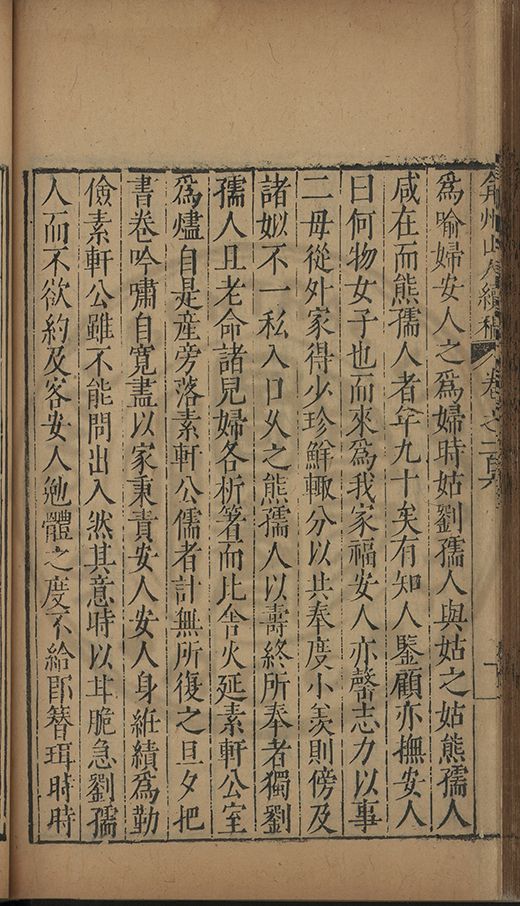 弇州山人續稿 卷之一百六
為喻婦安人之為婦時姑劉孺人與姑之姑熊孺人
咸在而熊孺人者年九十矣有知人鑒顧亦撫安人
曰何物女子也而來為我家福安人亦罄志力以事
二母從外家得少珍鮮輙分以共奉度小羨則傍及
諸姒不一私入口乆之熊孺人以壽終所奉者獨劉
孺人且老命諸兒婦各析箸而比舍火延素軒公室
為燼自是產旁落素軒公儒者計無所復之旦夕把
書卷吟嘯自寬盡以家秉責安人安人身紝績為勤
儉素軒公雖不能問出入然其意時以甘脆急劉孺
人而不欲約及客安人勉體之度不給即簪珥時時